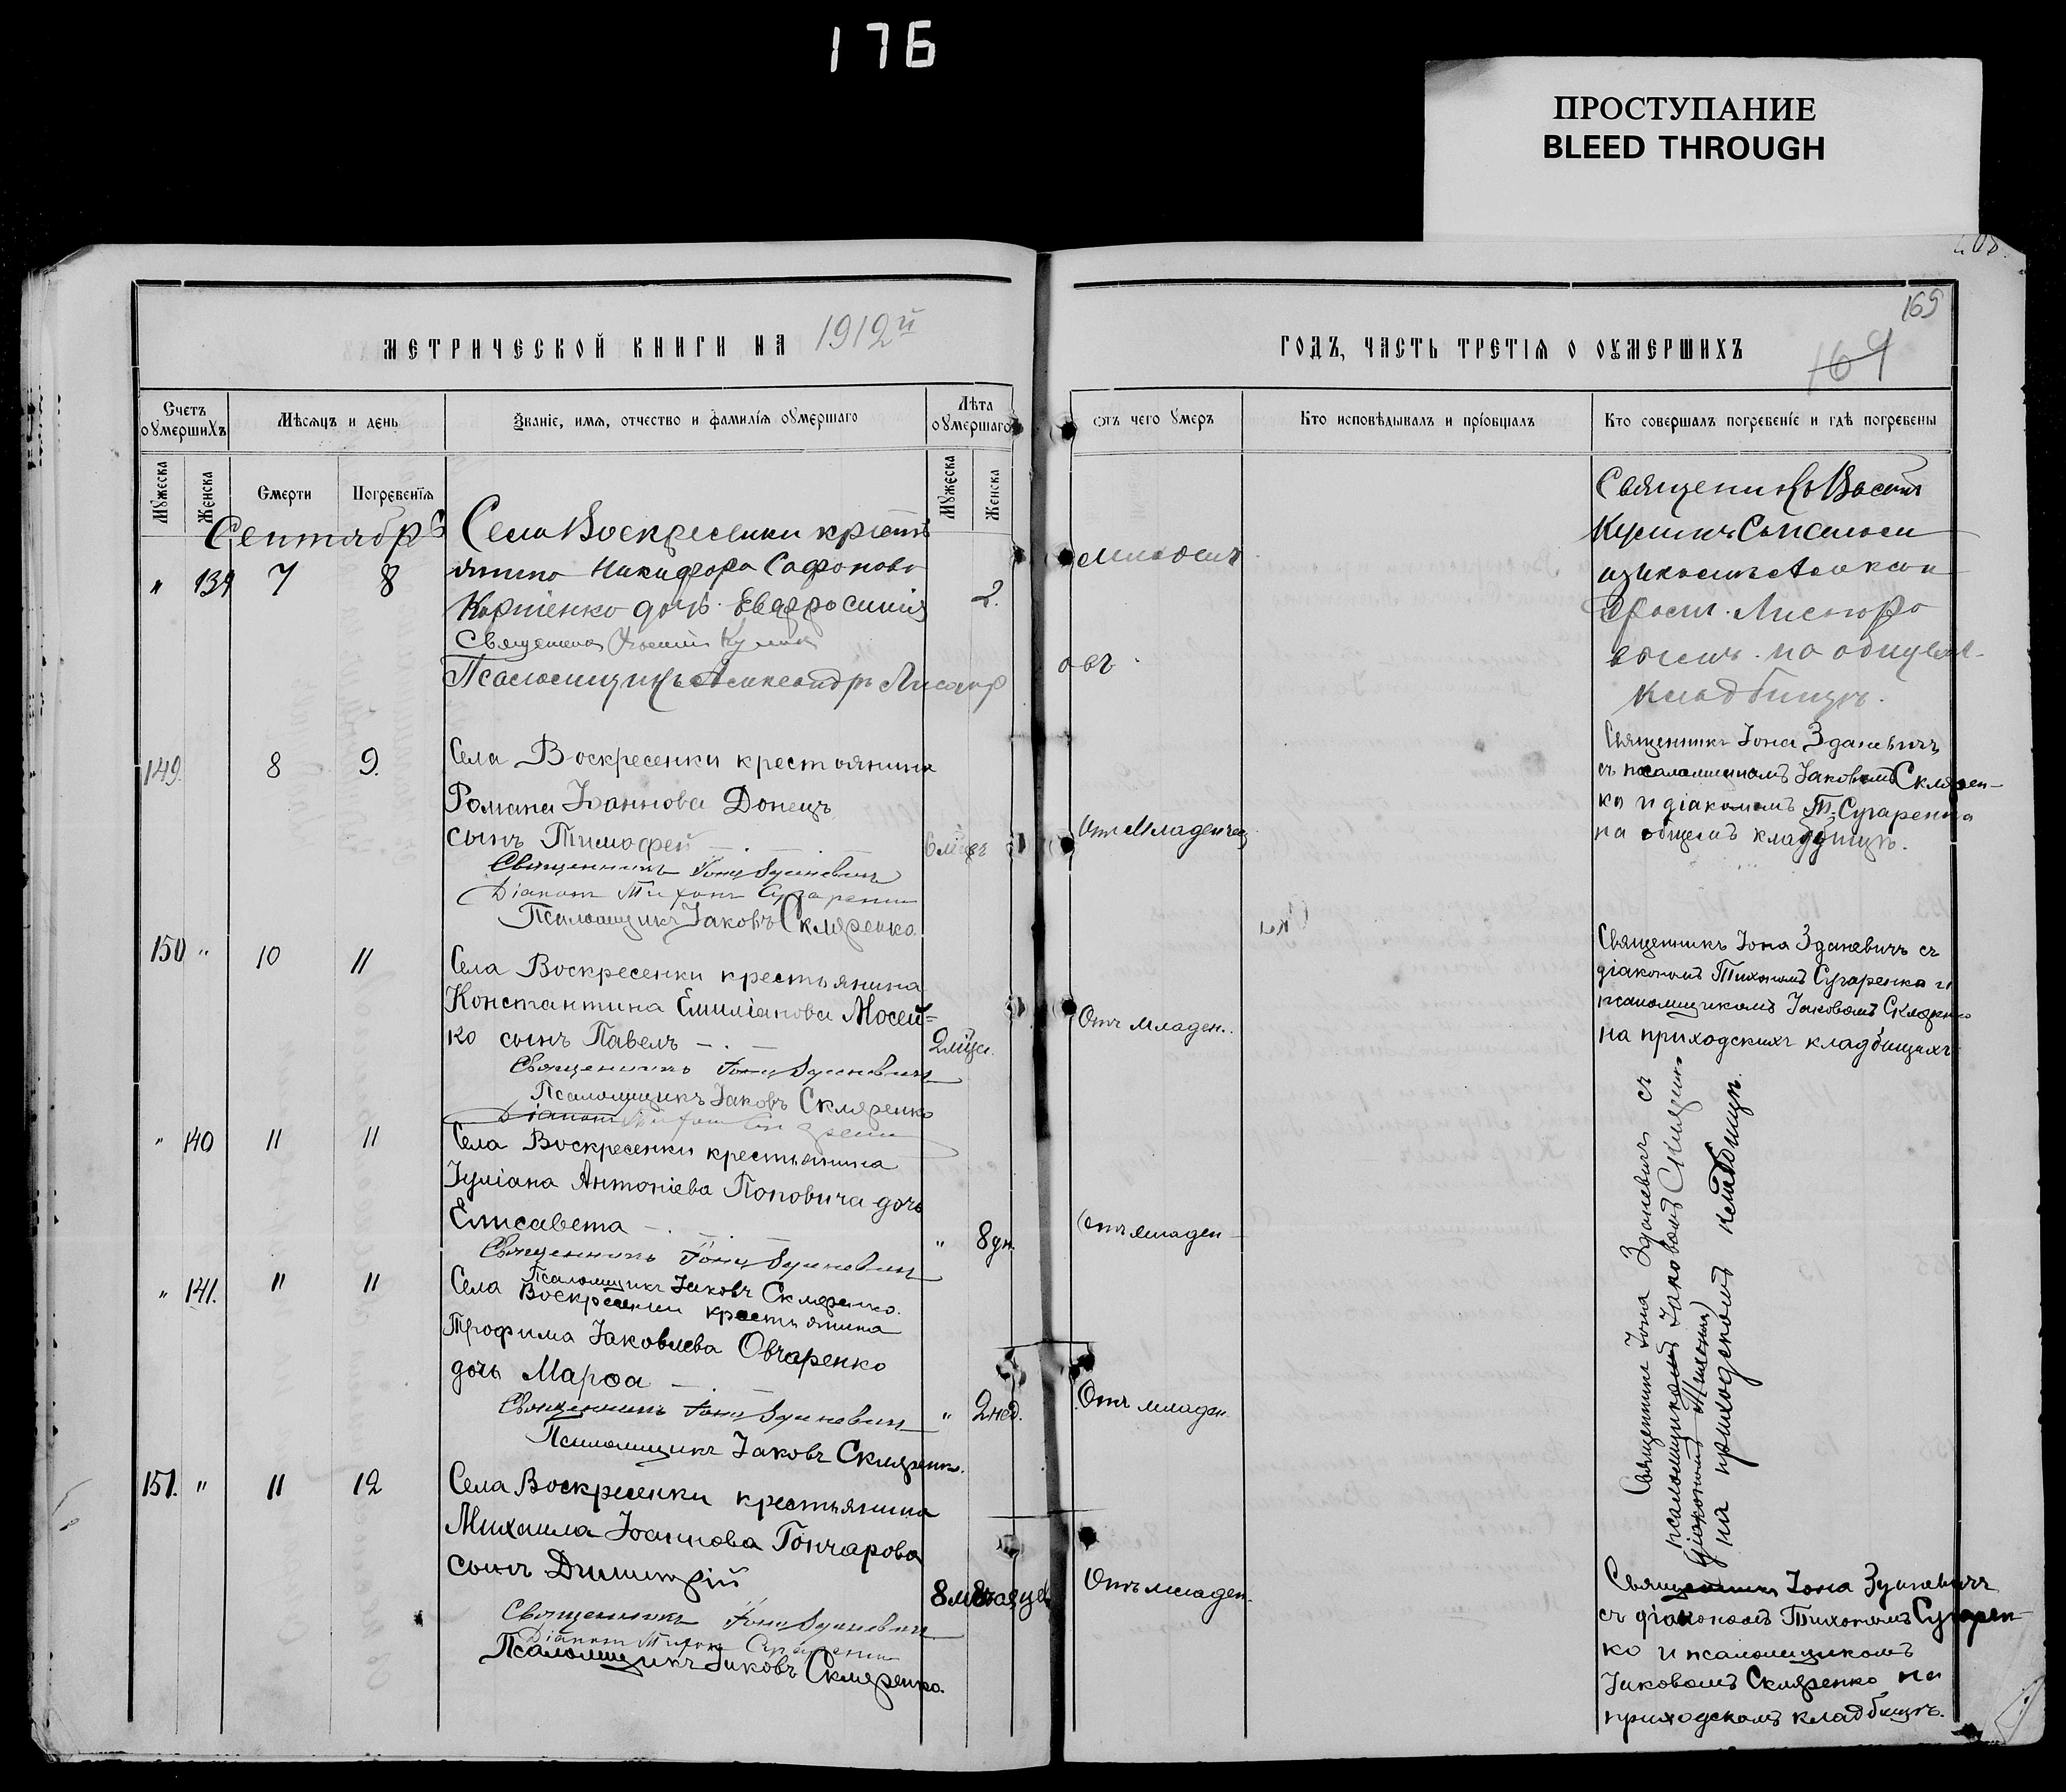 176
ПРОСТУПАНИЕ
BLEED THROUGH
169
169
МЕТРИЧЕСКОЙ КНИГИ НА 1912й
ГОДЪ, ЧАСТЬ ТРЕТІЯ О ОУМЕРШИХЪ
Счетъ оумершихъ
Мѣсяцъ и день
Званіе, имя, отчество и фамилія оумершаго
Лѣта оумершаго
отъ чего умеръ
Кто исповѣдывалъ и пріобщалъ
Кто совершалъ погребеніе и гдѣ погребены
Мужеска
Женска
Смерти
Погребенія
Мужеска
Женска
Сентябрь
" 139 7 8
Села Воскресенки крестъ
янина Никифора Сафонова
Корніенко дочь Евфросинія
2.
Священникъ
Псаломщикъ Александръ
младенч
овъ
Священикъ
на общем
кладбищѣ.
149. 8 9.
Села Воскресенки крестьянина
Романа Іоаннова Донецъ
сынъ Тимофей
Священникъ Іона Зданевичъ
Діаконъ Тихонъ Сугаренко
Псаломщикъ Іаковъ Скляренко
6 мѣсяц
Отъ младенчес
Священникъ Іона Зданевичъ
съ псаломщикомъ Іаковомъ Склярен-
ко и діакономъ Т. Сугаренко
на общемъ кладбищѣ.
150 " 10 11
Села Воскресенки крестьянина
Константина Емиліанова Мосей=
ко сынъ Павелъ — . —
Священникъ Іона Зданевичъ
Псаломщикъ Іаковъ Скляренко
Діаконъ Тихонъ
2 мѣся.
Отъ младен.
Священникъ Іона Зданевичъ съ
діакономъ Тихономъ Сугаренко и
псаломщикомъ Іаковомъ Скляренко
на приходскихъ кладбищахъ
" 140 11 11
Села Воскресенки крестьянина
Іуліана Антоніева Поповича дочь
Елисавета — . —
Священникъ Іона Зданевичъ
Псаломщикъ Іаковъ Скляренко.
" 8 дн.
Отъ младен
Священники Іона Зданевичъ съ
псаломщикомъ Іаковомъ
діакономъ Тихономъ)
на приходскомъ кладбищѣ.
" 141. 11 11
Села Воскресенки крестьянина
Трофима Іаковлева Овчаренко
дочь Марѳа — . —
Священникъ Іона Зданевичъ
Псаломщикъ Іаковъ Скляренко.
" 2 нед.
Отъ младен.
151. " 11 12
Села Воскресенки крестьянина
Михаила Іоаннова Гончарова
сынъ Димитрій
Священникъ Іона Зданевичъ
Діаконъ Тихонъ Сугаренко
Псаломщикъ Іаковъ Скляренко.
8 мѣсяцев
Отъ младен.
Священникъ Іона Зданевичъ
съ діакономъ Тихономъ Сугарен-
ко и псаломщикомъ
Іаковомъ Скляренко на
приходскомъ кладбищѣ.